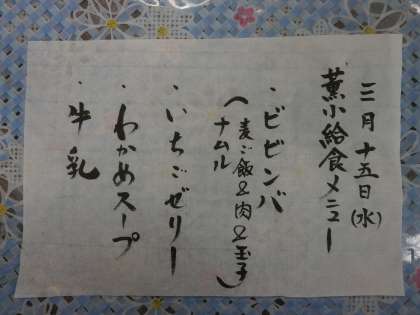 三月十五日(水)
薫小給食メニュー
・ビビンバ
(麦ご飯&肉&玉子
ナムル)
・いちごゼリー
・わかめスープ
・牛乳